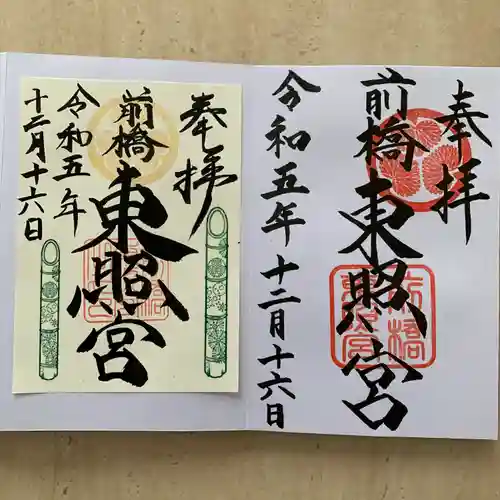 奉拝
前橋
東照宮
令和五年十二月十六日
前橋東照宮
奉拝
前橋
東照宮
令和五年
十二月十六日